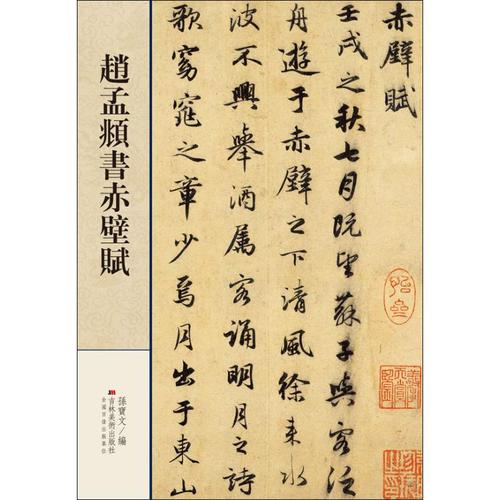 趙孟頫書赤壁賦
孫寶文/編
吉林美術出版社
全國百佳出版單位
赤壁賦
壬戌之秋七月既望蘇子與客泛
舟遊于赤壁之下清風徐来水
波不興舉酒属客誦明月之詩
歌窈窕之章少焉月出于東山